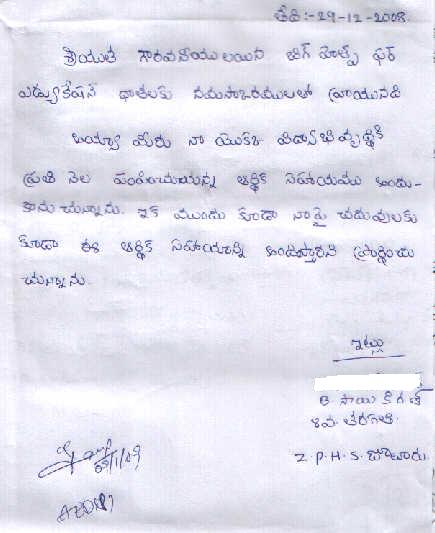 తేది:- 29-12-2008.
శ్రీయుత గౌరవనీయులయిన బిగ్ హెల్ప్ ఫర్
ఎడ్యుకేషన్ దాతలకు నమస్కారములతో వ్రాయునది
అయ్యా మీరు నా యొక్క విద్యాభివృద్ధికి
ప్రతి నెల పంపించుచున్న ఆర్థిక సహాయము అందు-
కొనుచున్నాను. ఇక ముందు కూడా నా పై చదువులకు
కూడా ఈ ఆర్థిక సహాయాన్ని అందిస్తారని ప్రార్థించు
చున్నాను.
ఇట్లు
B. సాయి కిరణ్
8వ. తరగతి.
Z.P.H.S. బోటూరు.